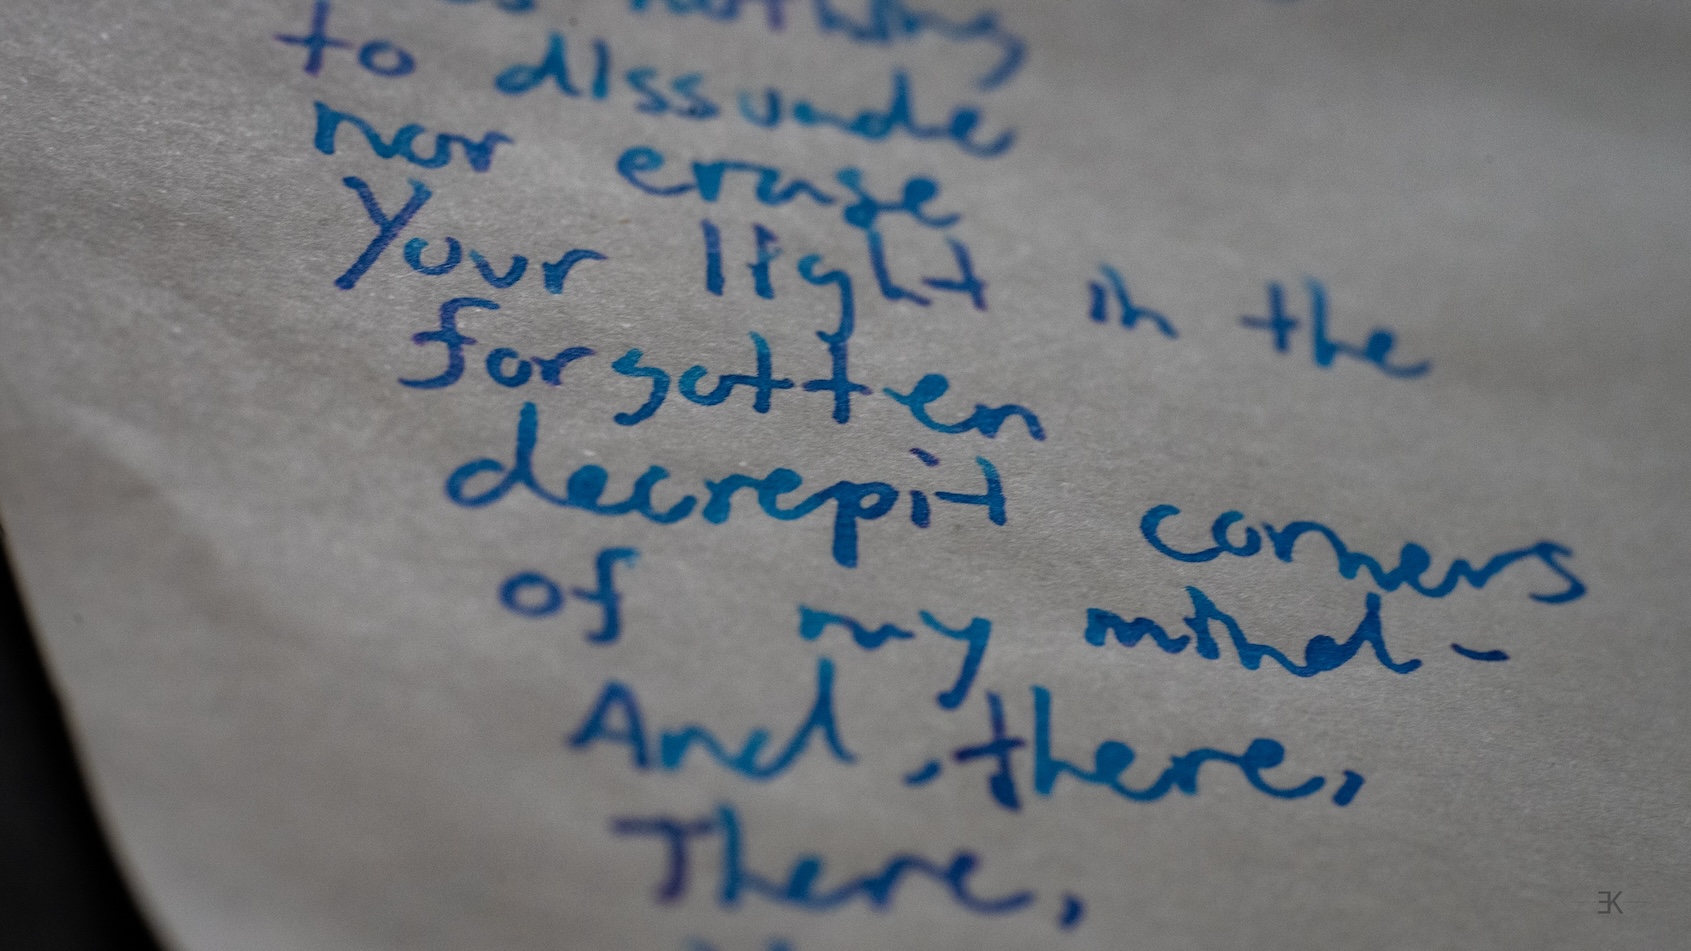 nothing
to dissuade
nor erase
Your light in the
forgotten
decrepit corners
of my mind -
And, there,
There,
EK